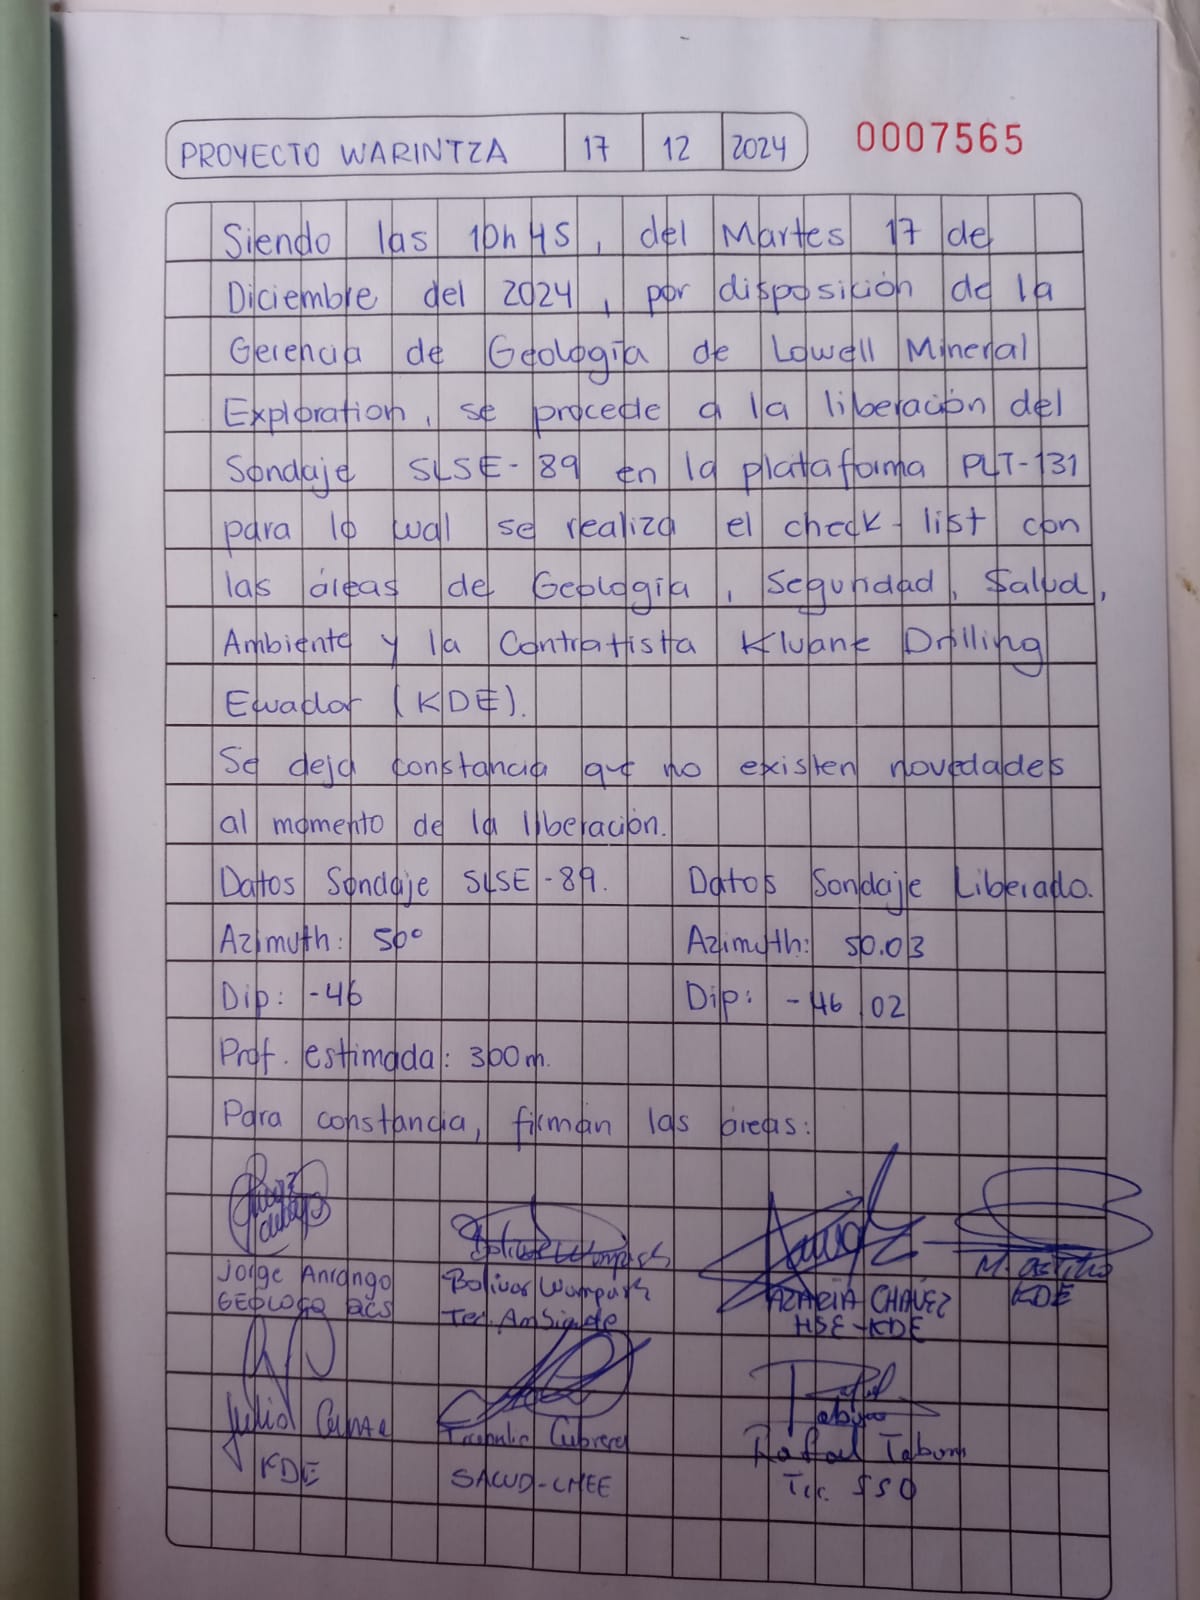 PROYECTO WARINTZA 17 12 2024 0007565
Siendo las 10h45, del Martes 17 de
Diciembre del 2024, por disposición de la
Gerencia de Geología de Lowell Mineral
Exploration, se procede a la liberación del
Sondaje SLSE-89 en la plataforma PLT-131
para lo cual se realiza el check-list con
las áreas de Geología, Seguridad, Salud,
Ambiente y la Contratista Kluane Drilling
Ecuador (KDE).
Se deja constancia que no existen novedades
al momento de la liberación.
Datos Sondaje SLSE-89. Datos Sondaje Liberado.
Azimuth: 50° Azimuth: 50.03
Dip: -46 Dip: -46.02
Prof. estimada: 300m.
Para constancia, firman las áreas:
Jorge Anrango Bolivar Wampash AZARIA CHÁVEZ KDE
GEÓLOGO Tec. Ambiente HSE-KDE
Julio Cabrera Rafael
KDE SALUD-LMEE Tec. SSO